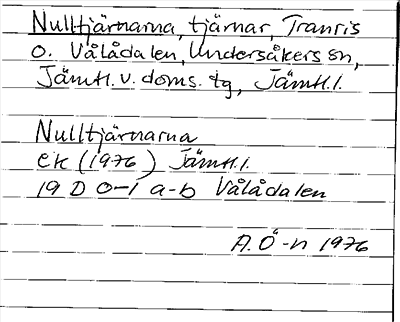 Nulltjärnarna, tjärnar, Tranris
o. Vålådalen, Undersåkers sn,
Jämtl. v. doms. tg, Jämtl. l.
Nulltjärnarna
ek (1976) Jämtl. l.
19 D 0-1 a-b Vålådalen
A. Ö-n 1976